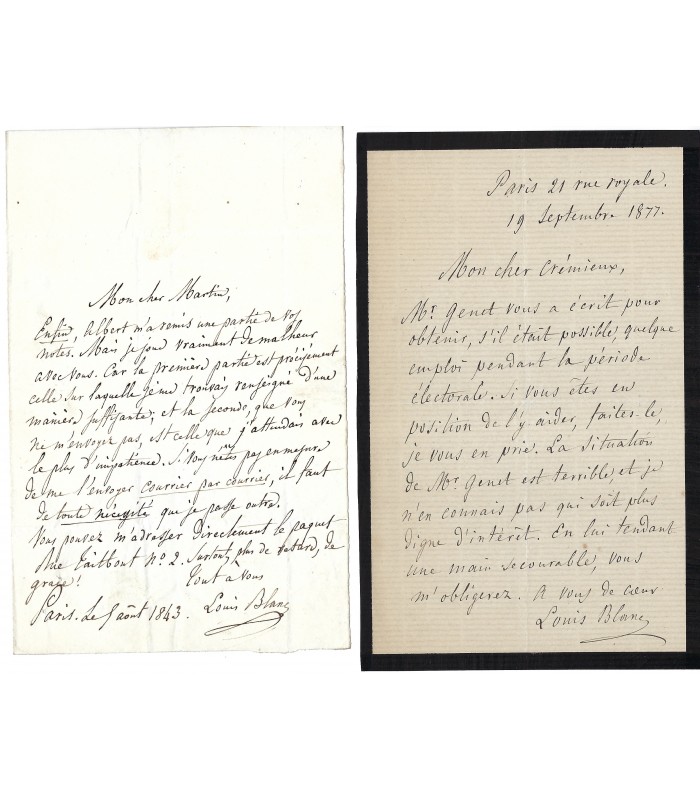 Mon cher Martin,
Enfin, Albert m'a remis une partie de vos
notes. Mais je joue vraiment de malheur
avec vous. Car la première partie est précisément
celle sur laquelle je me trouvais renseigné d'une
manière suffisante; et la seconde, que vous
ne m'envoyez pas, est celle que j'attendais avec
le plus d'impatience. Si vous n'êtes pas en mesure
de me l'envoyer courrier par courrier, il faut
de toute nécessité que je passe outre.
Vous pouvez m'adresser directement le paquet
Rue Taitbout No. 2. Surtout, plus de retard, de
grâce!
Tout à vous
Paris. Le août 1843. Louis Blanc
Paris 21 rue royale.
19 Septembre 1877.
Mon cher Crémieux,
Mr. Genet vous a écrit pour
obtenir, s'il était possible, quelque
emploi pendant la période
électorale. Si vous êtes en
position de l'y aider, faites-le,
je vous en prie. La situation
de Mr. Genet est terrible, et je
n'en connais pas qui soit plus
digne d'intérêt. En lui tendant
une main secourable, vous
m'obligerez. A vous de cœur
Louis Blanc